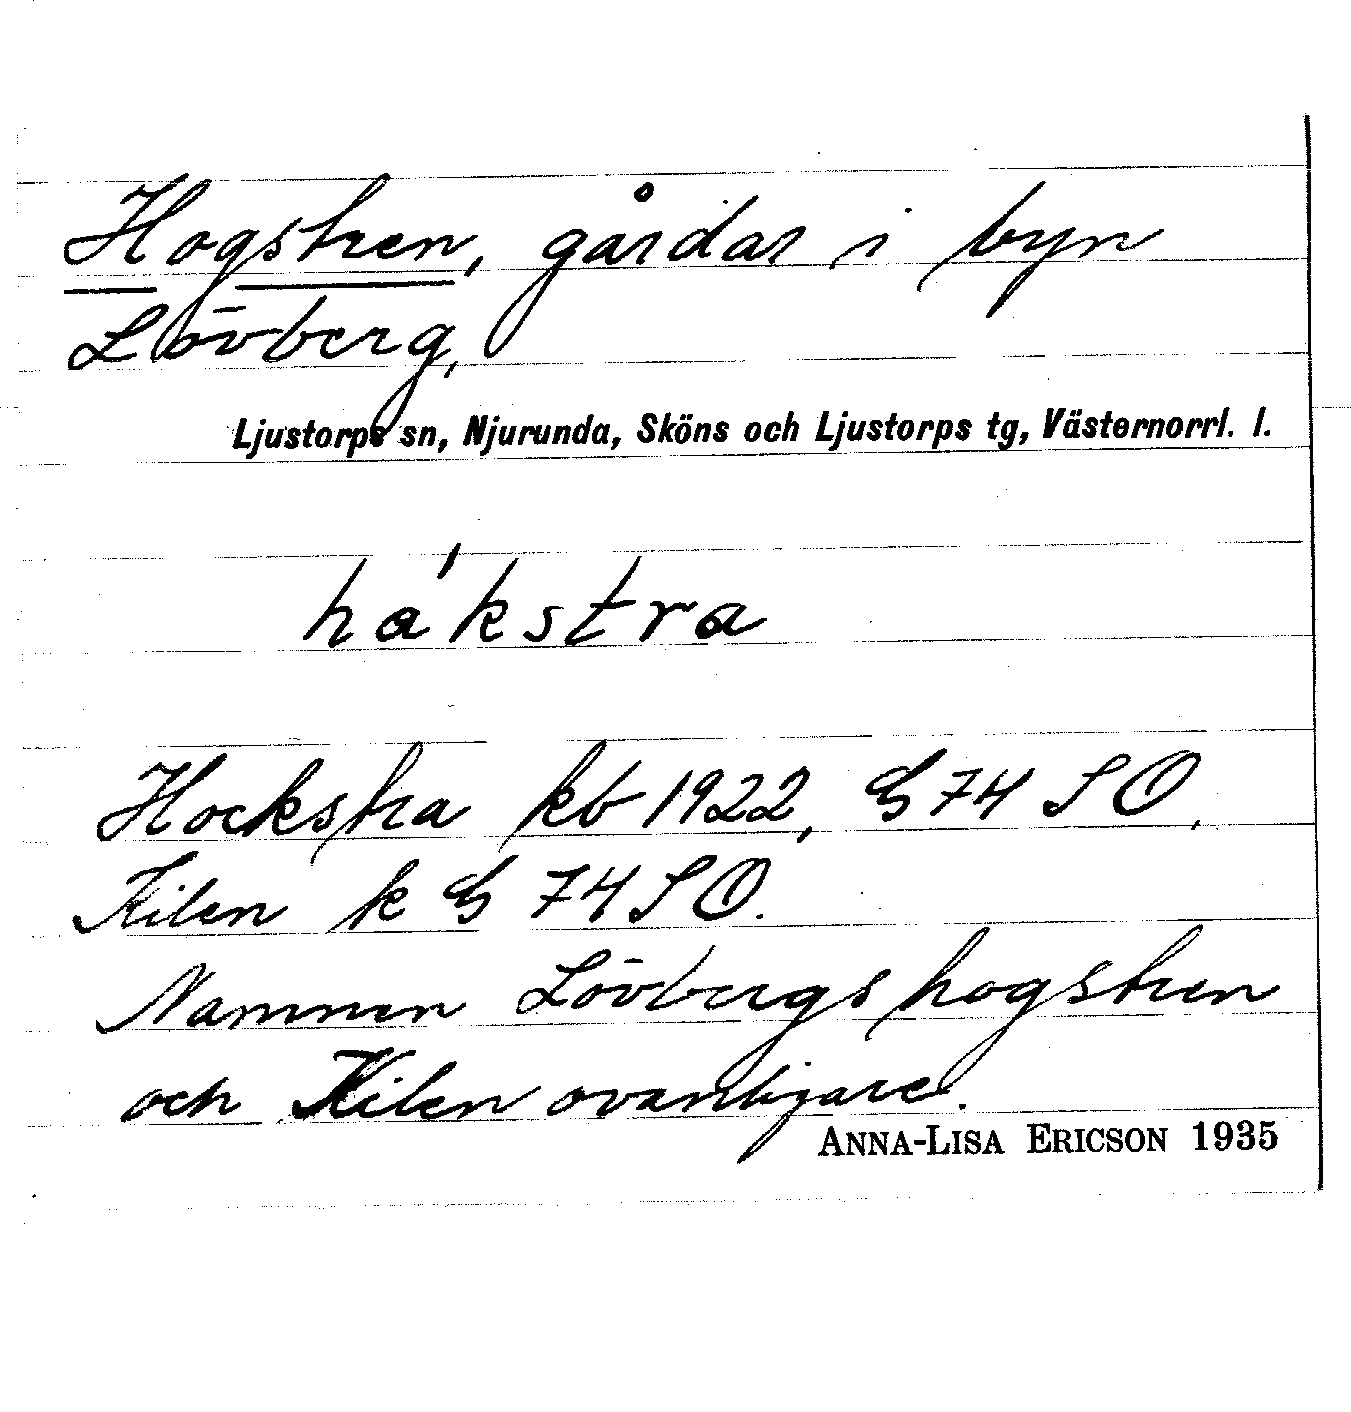 Hogstren, gårdar i byn
Lövberg,
Ljustorps sn, Njurunda, Sköns och Ljustorps tg, Västernorrl. l.
hákstra
Hockstra kb 1922, G 74 SO,
Kilen k G 74 SO.
Namnen Lövbergshogstren
och Kilen ovanligare.
ANNA-LISA ERICSON 1935